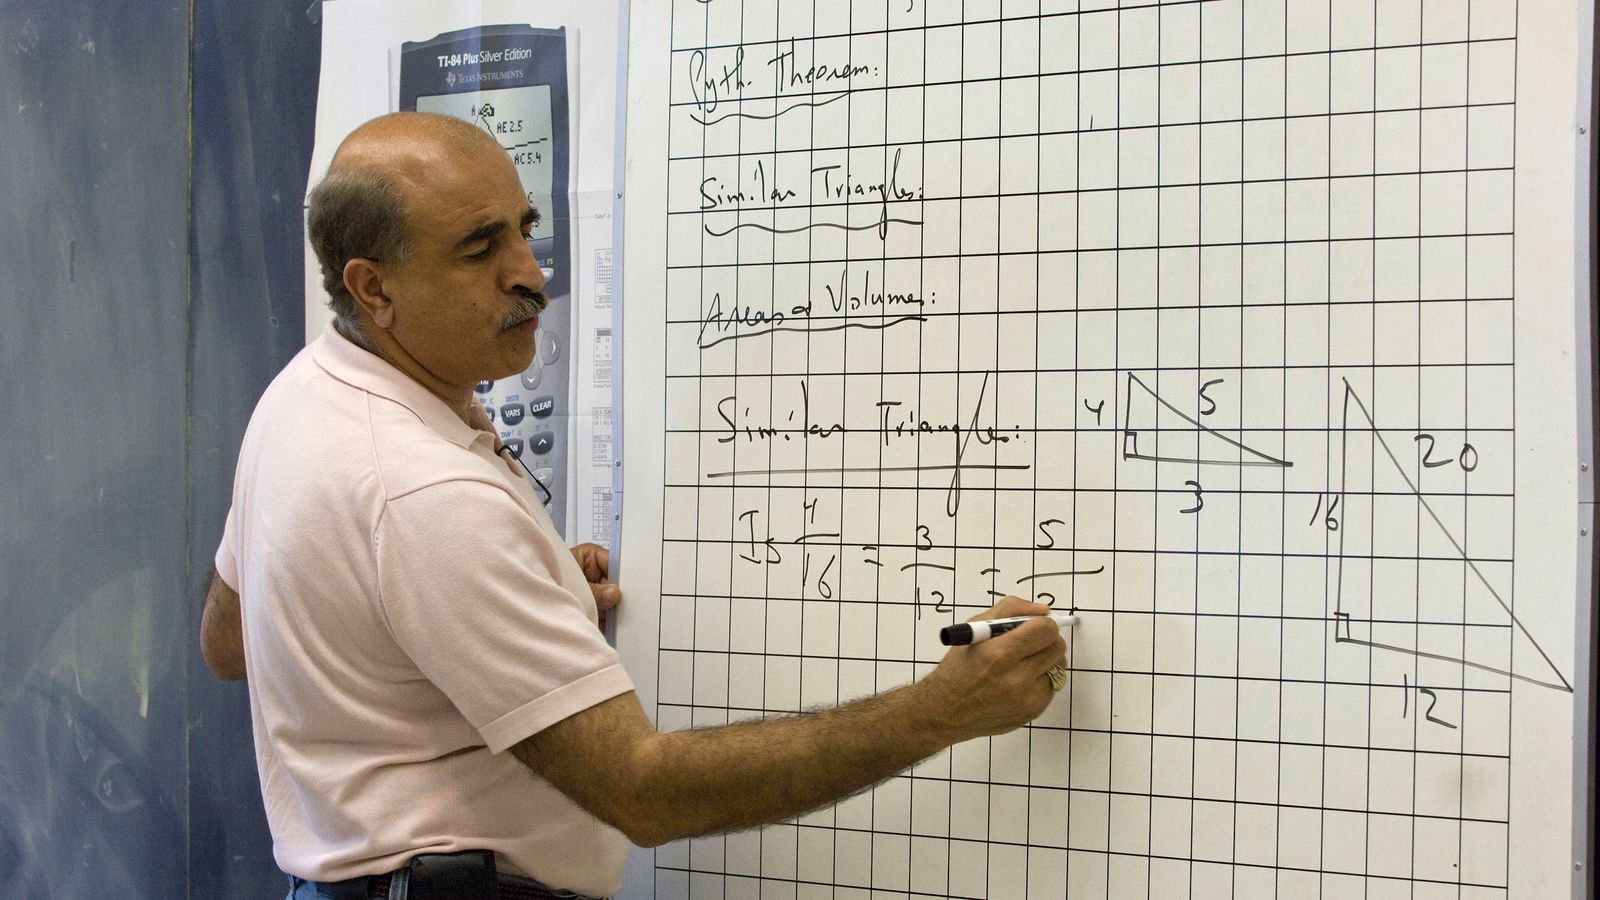 TI-84 Plus Silver Edition
TEXAS INSTRUMENTS
A
AE 2.5
AC 5.4
C
VARS
CLEAR
DISTR
Pyth. Theorem:
Similar Triangles:
Areas & Volumes:
Similar Triangles:
4 5
3
20
16
12
Is 4/16 = 3/12 = 5/2